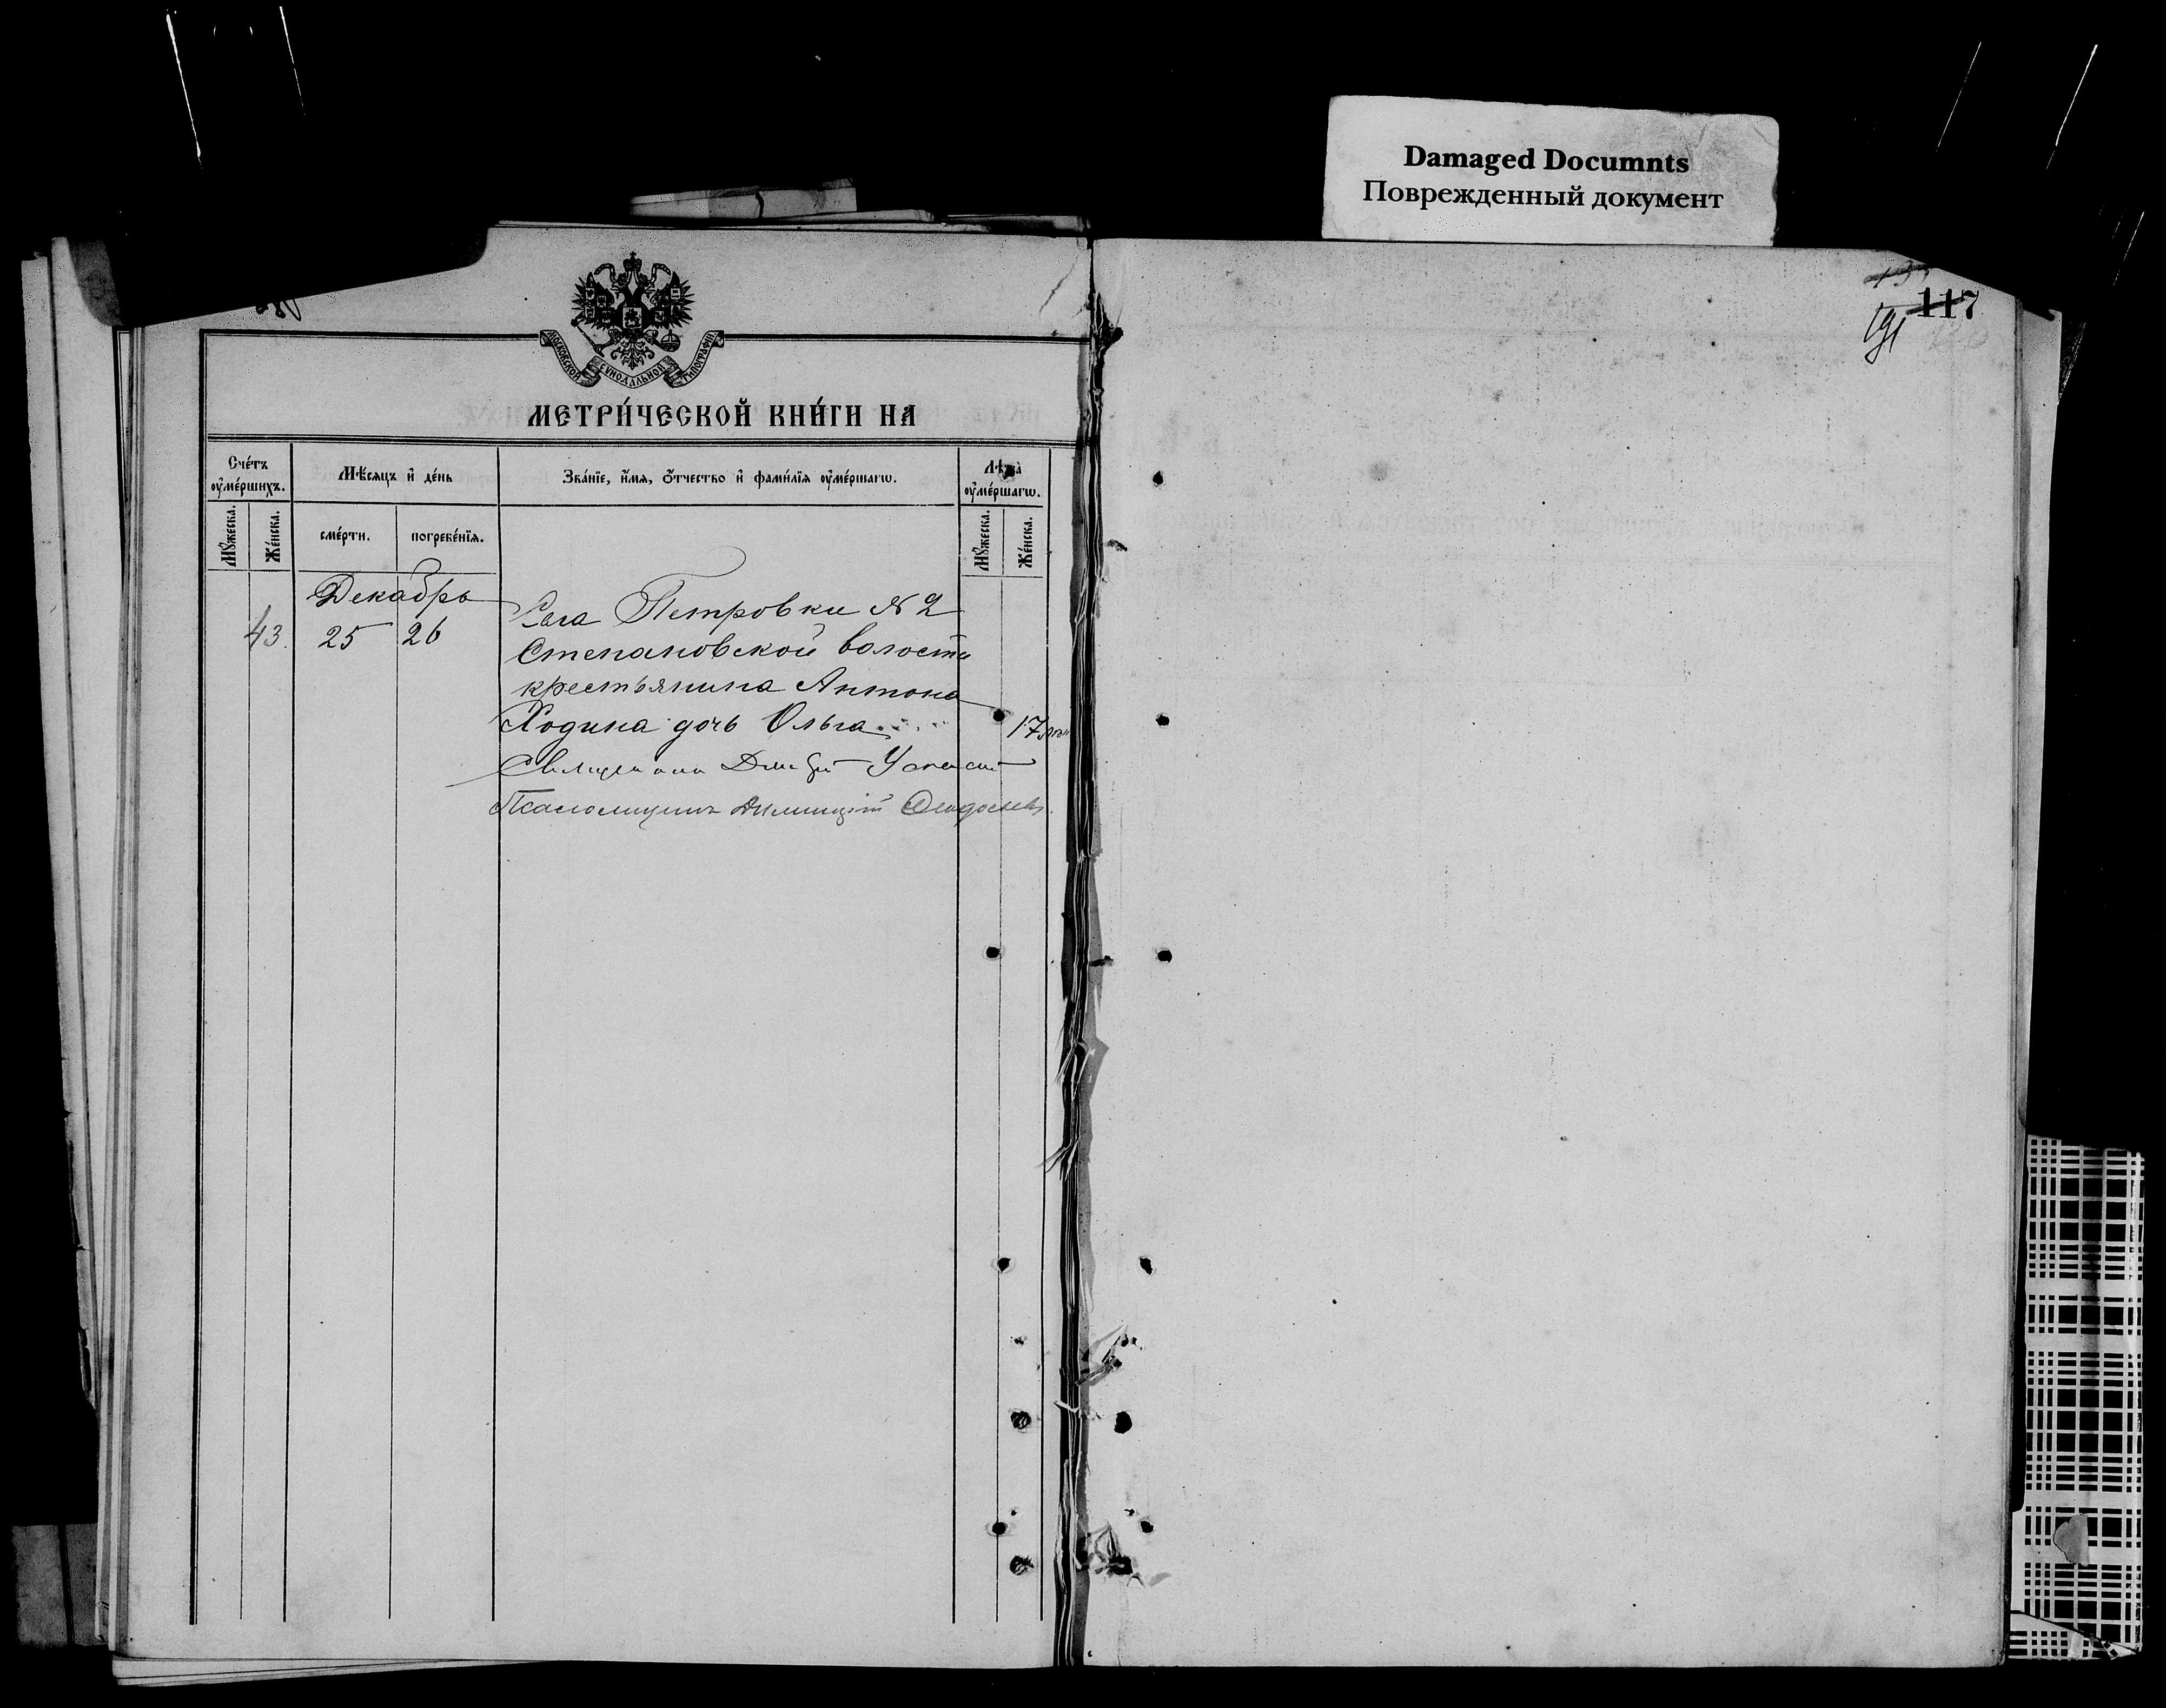 Damaged Documnts
Поврежденный документ
117
МОСКОВСКОЙ СѴНОДАЛЬНОЙ ТИПОГРАФІИ
МЕТРИ́ЧЕСКОЙ КНИ́ГИ НА
Сче́тъ оу҆ме́ршихъ.
Мѣ́сяцъ и҆ де́нь
Зва́нїе, и҆́мѧ, ѻ҆́тчество и҆ фами́лїѧ оу҆ме́ршагѡ.
Лѣта̀ оу҆ме́ршагѡ.
Мꙋ́жеска.
Же́нска.
сме́рти.
погребе́нїѧ.
Мꙋ́жеска.
Же́нска.
Декабрь
43. 25 26
Села Петровки № 2
Степановской волости
крестьянина Антона
Ходина дочь Ольга 17
Священникъ
Псаломщикъ